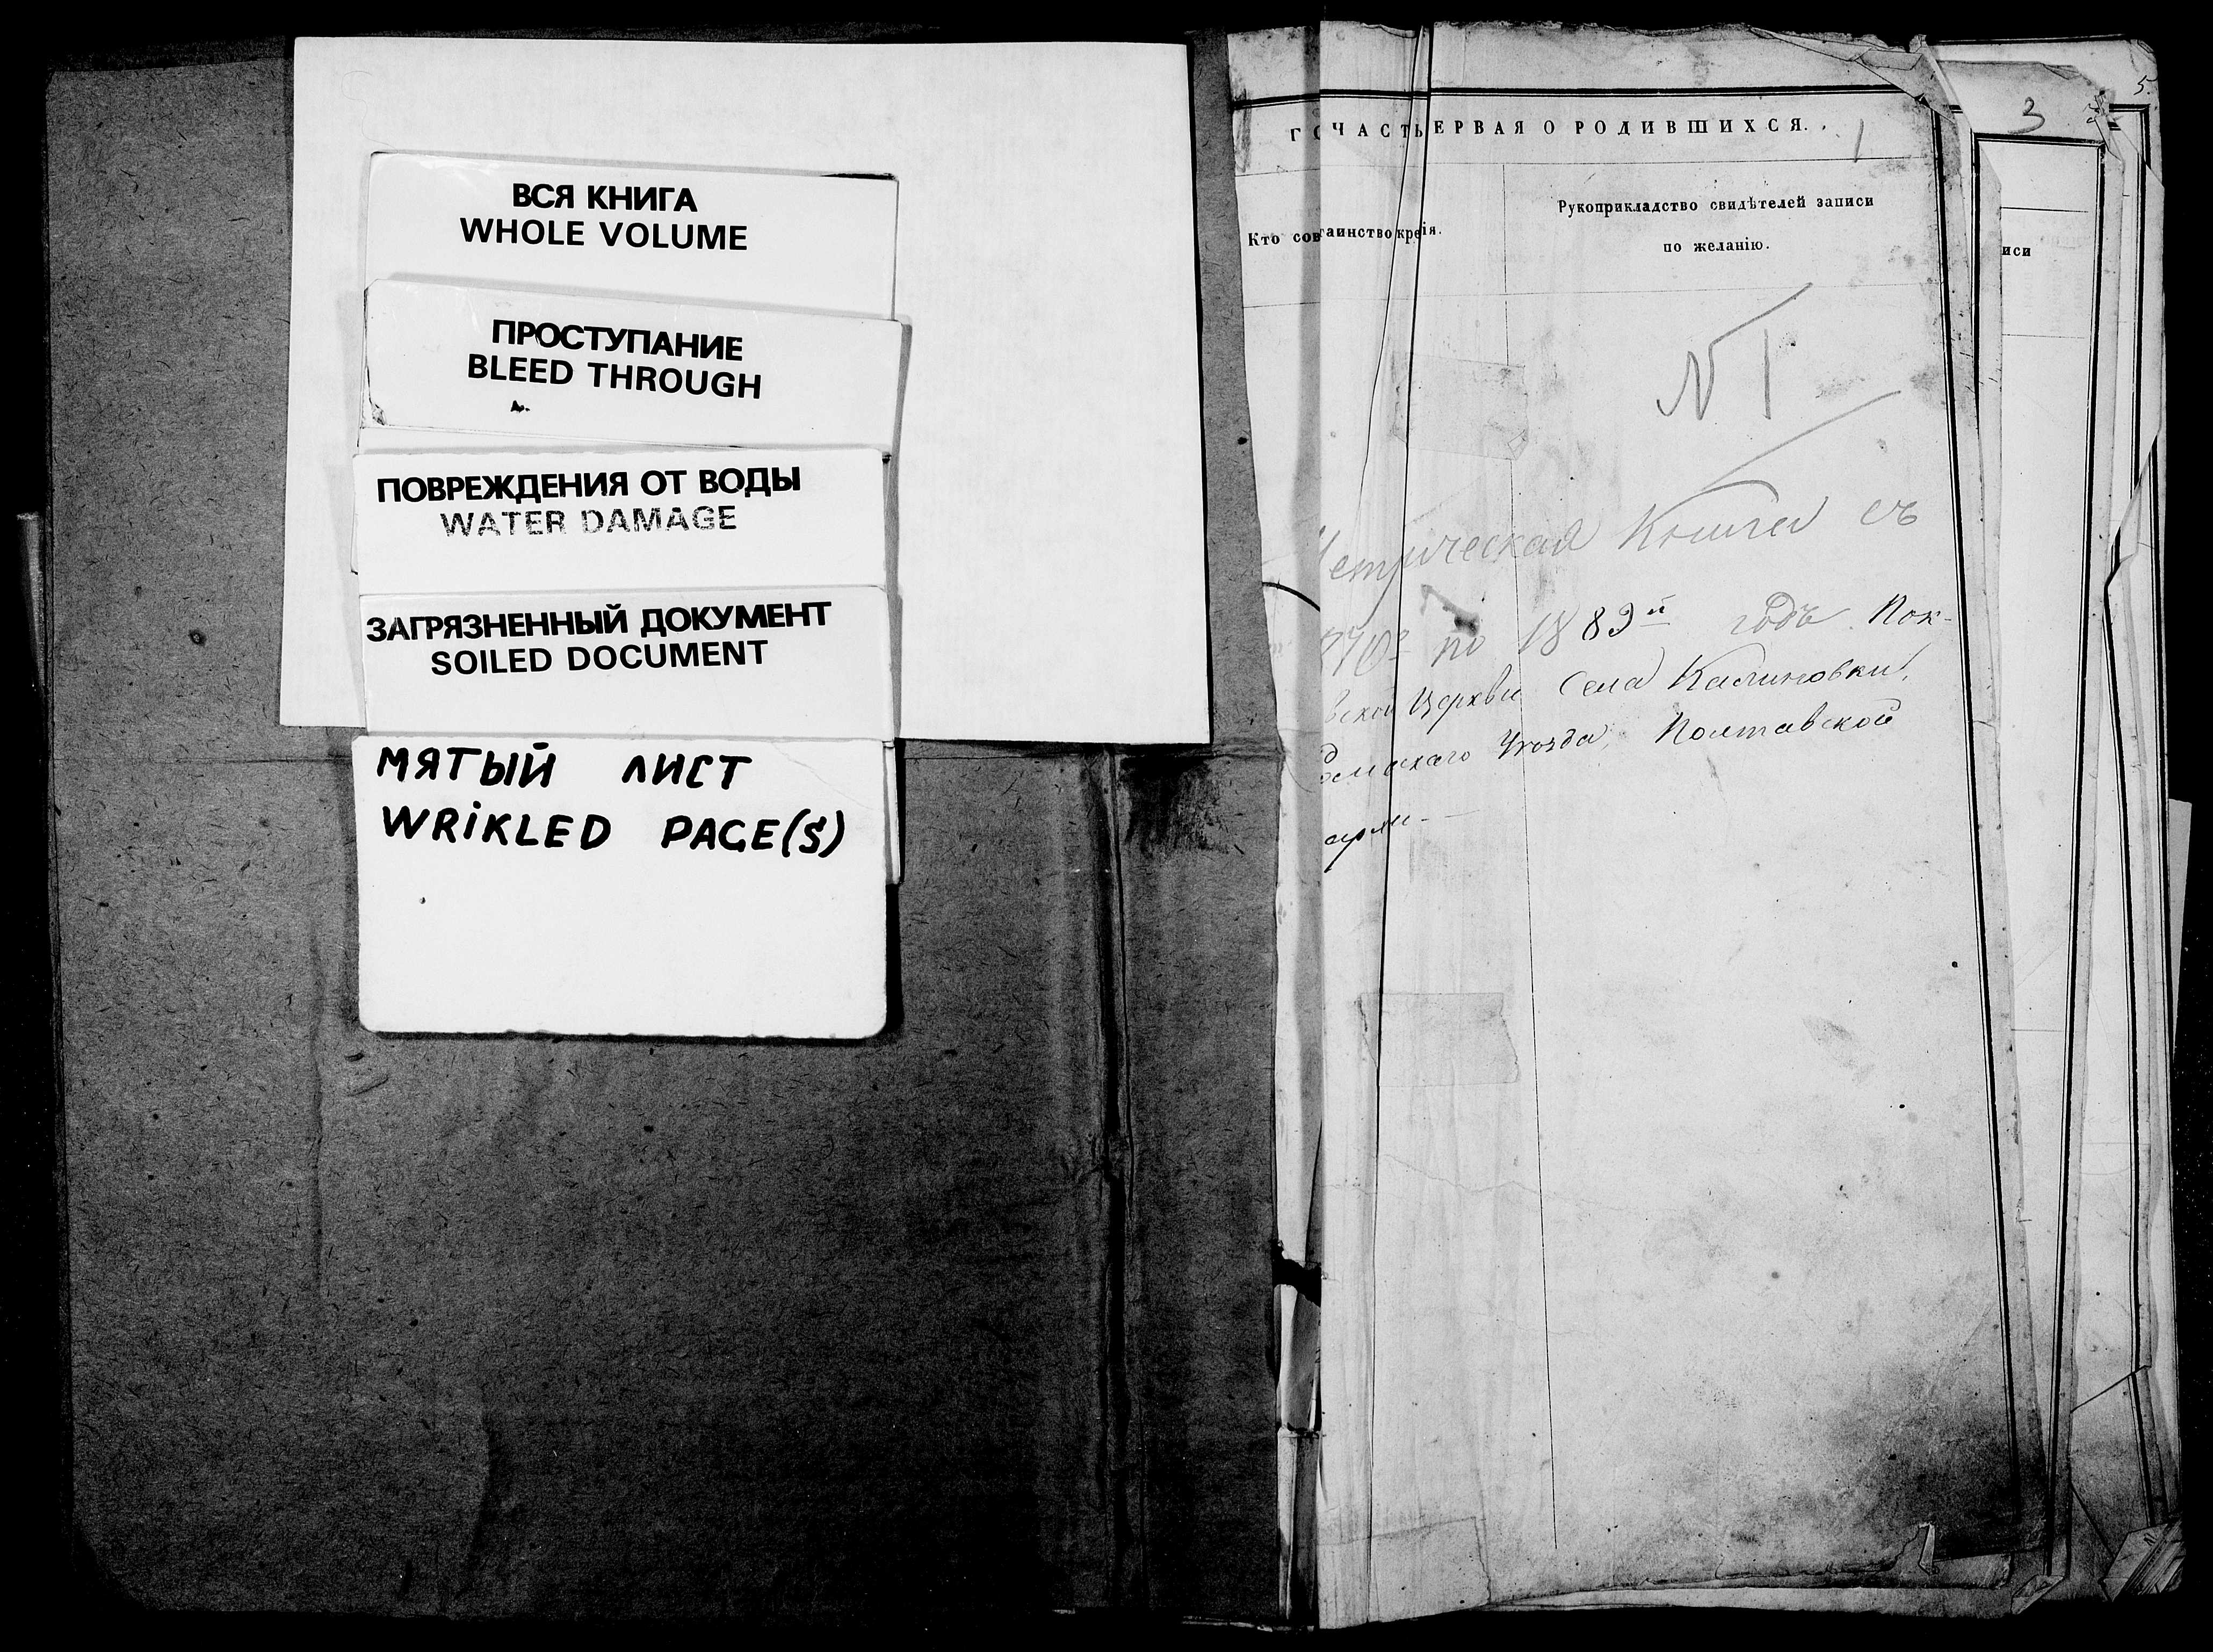 ВСЯ КНИГА
WHOLE VOLUME
ПРОСТУПАНИЕ
BLEED THROUGH
ПОВРЕЖДЕНИЯ ОТ ВОДЫ
WATER DAMAGE
ЗАГРЯЗНЕННЫЙ ДОКУМЕНТ
SOILED DOCUMENT
МЯТЫЙ ЛИСТ
WRIKLED PAGE(S)
5.
3
ЧАСТЬ ЕРВАЯ О РОДИВШИХСЯ.
1
Кто сов таинство кре ія.
Рукоприкладство свидѣтелей записи
по желанію.
иси
N 1
етрическая Книга съ
по 1889й годъ Пок-
вской Церкви Села Калиновки,
Уѣзда, Полтавской